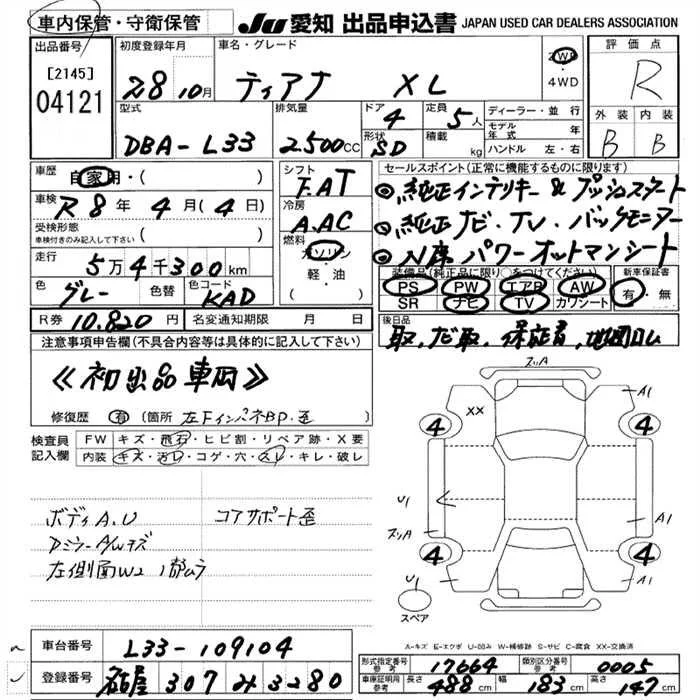 車内保管・守衛保管
JU 愛知 出品申込書 JAPAN USED CAR DEALERS ASSOCIATION
出品番号
[2145]
04121
初度登録年月
28 10月
車名・グレード
ティアナ XL
2WD
・
4WD
評価点
R
外装 内装
B B
型式
DBA-L33
排気量
2.500CC
ドア
4
定員
5人
形状
SD
積載
kg
ディーラー・並行
モデル年式 年
ハンドル 左・右
車歴
自家用・( )
車検
R 8年 4月 (4日)
受検形態
車検付きのみ記入して下さい ( )
走行
5万4千300km
色
グレー
色替
色コード
KAD
シフト
F.AT
冷房
A.AC
燃料
ガソリン
軽・油
( )
セールスポイント(正常に機能するものに限ります)
◎純正インテリキー&プッシュスタート
◎純正ナビ・TV・バックモニター
◎N席パワーオットマンシート
装備品(純正品に限り○をつけてください)
PS PW エアB AW
SR ナビ TV カワシート
新車保証書
有・無
R券 10.820円
名変通知期限 月 日
後日品
取、ナビ取、保証書、
注意事項申告欄(不具合内容等は具体的に記入して下さい)
≪初出品車両≫
修復歴 有 (箇所 左FインパネBP・歪)
検査員記入欄
FW キズ・飛石・ヒビ割・リペア跡・X要
内装 キズ・汚レ・コゲ・穴・スレ・キレ・破レ
ボディA.U
DミラーA/Wキズ
左側面W2 1部ムラ
コアサポート歪
ズリA
XX
A1
4
4
U1
ズリA
A1
4
4
U1
スペア
A-キズ E-エクボ U-凹み W-補修跡 S-サビ C-腐食 XX-交換済
車台番号 L33-109104
登録番号 名古屋 307 み 3280
形式指定番号 参考 17664
類別区分番号 参考 0005
車庫証明用 参考 長さ 488cm 幅 183cm 高さ 147cm